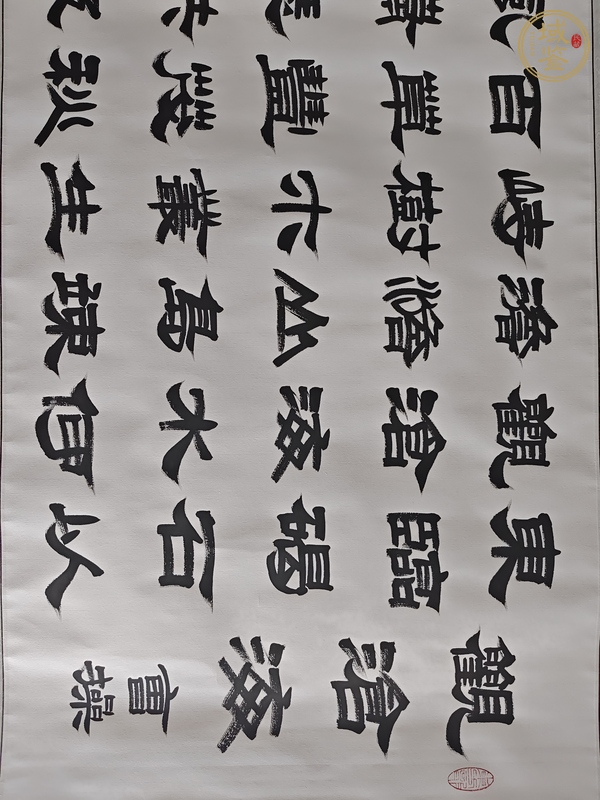 觀滄海曹操
東臨碣石以
觀滄海水何
澹澹山島竦
峙樹木叢生
百草豐茂秋